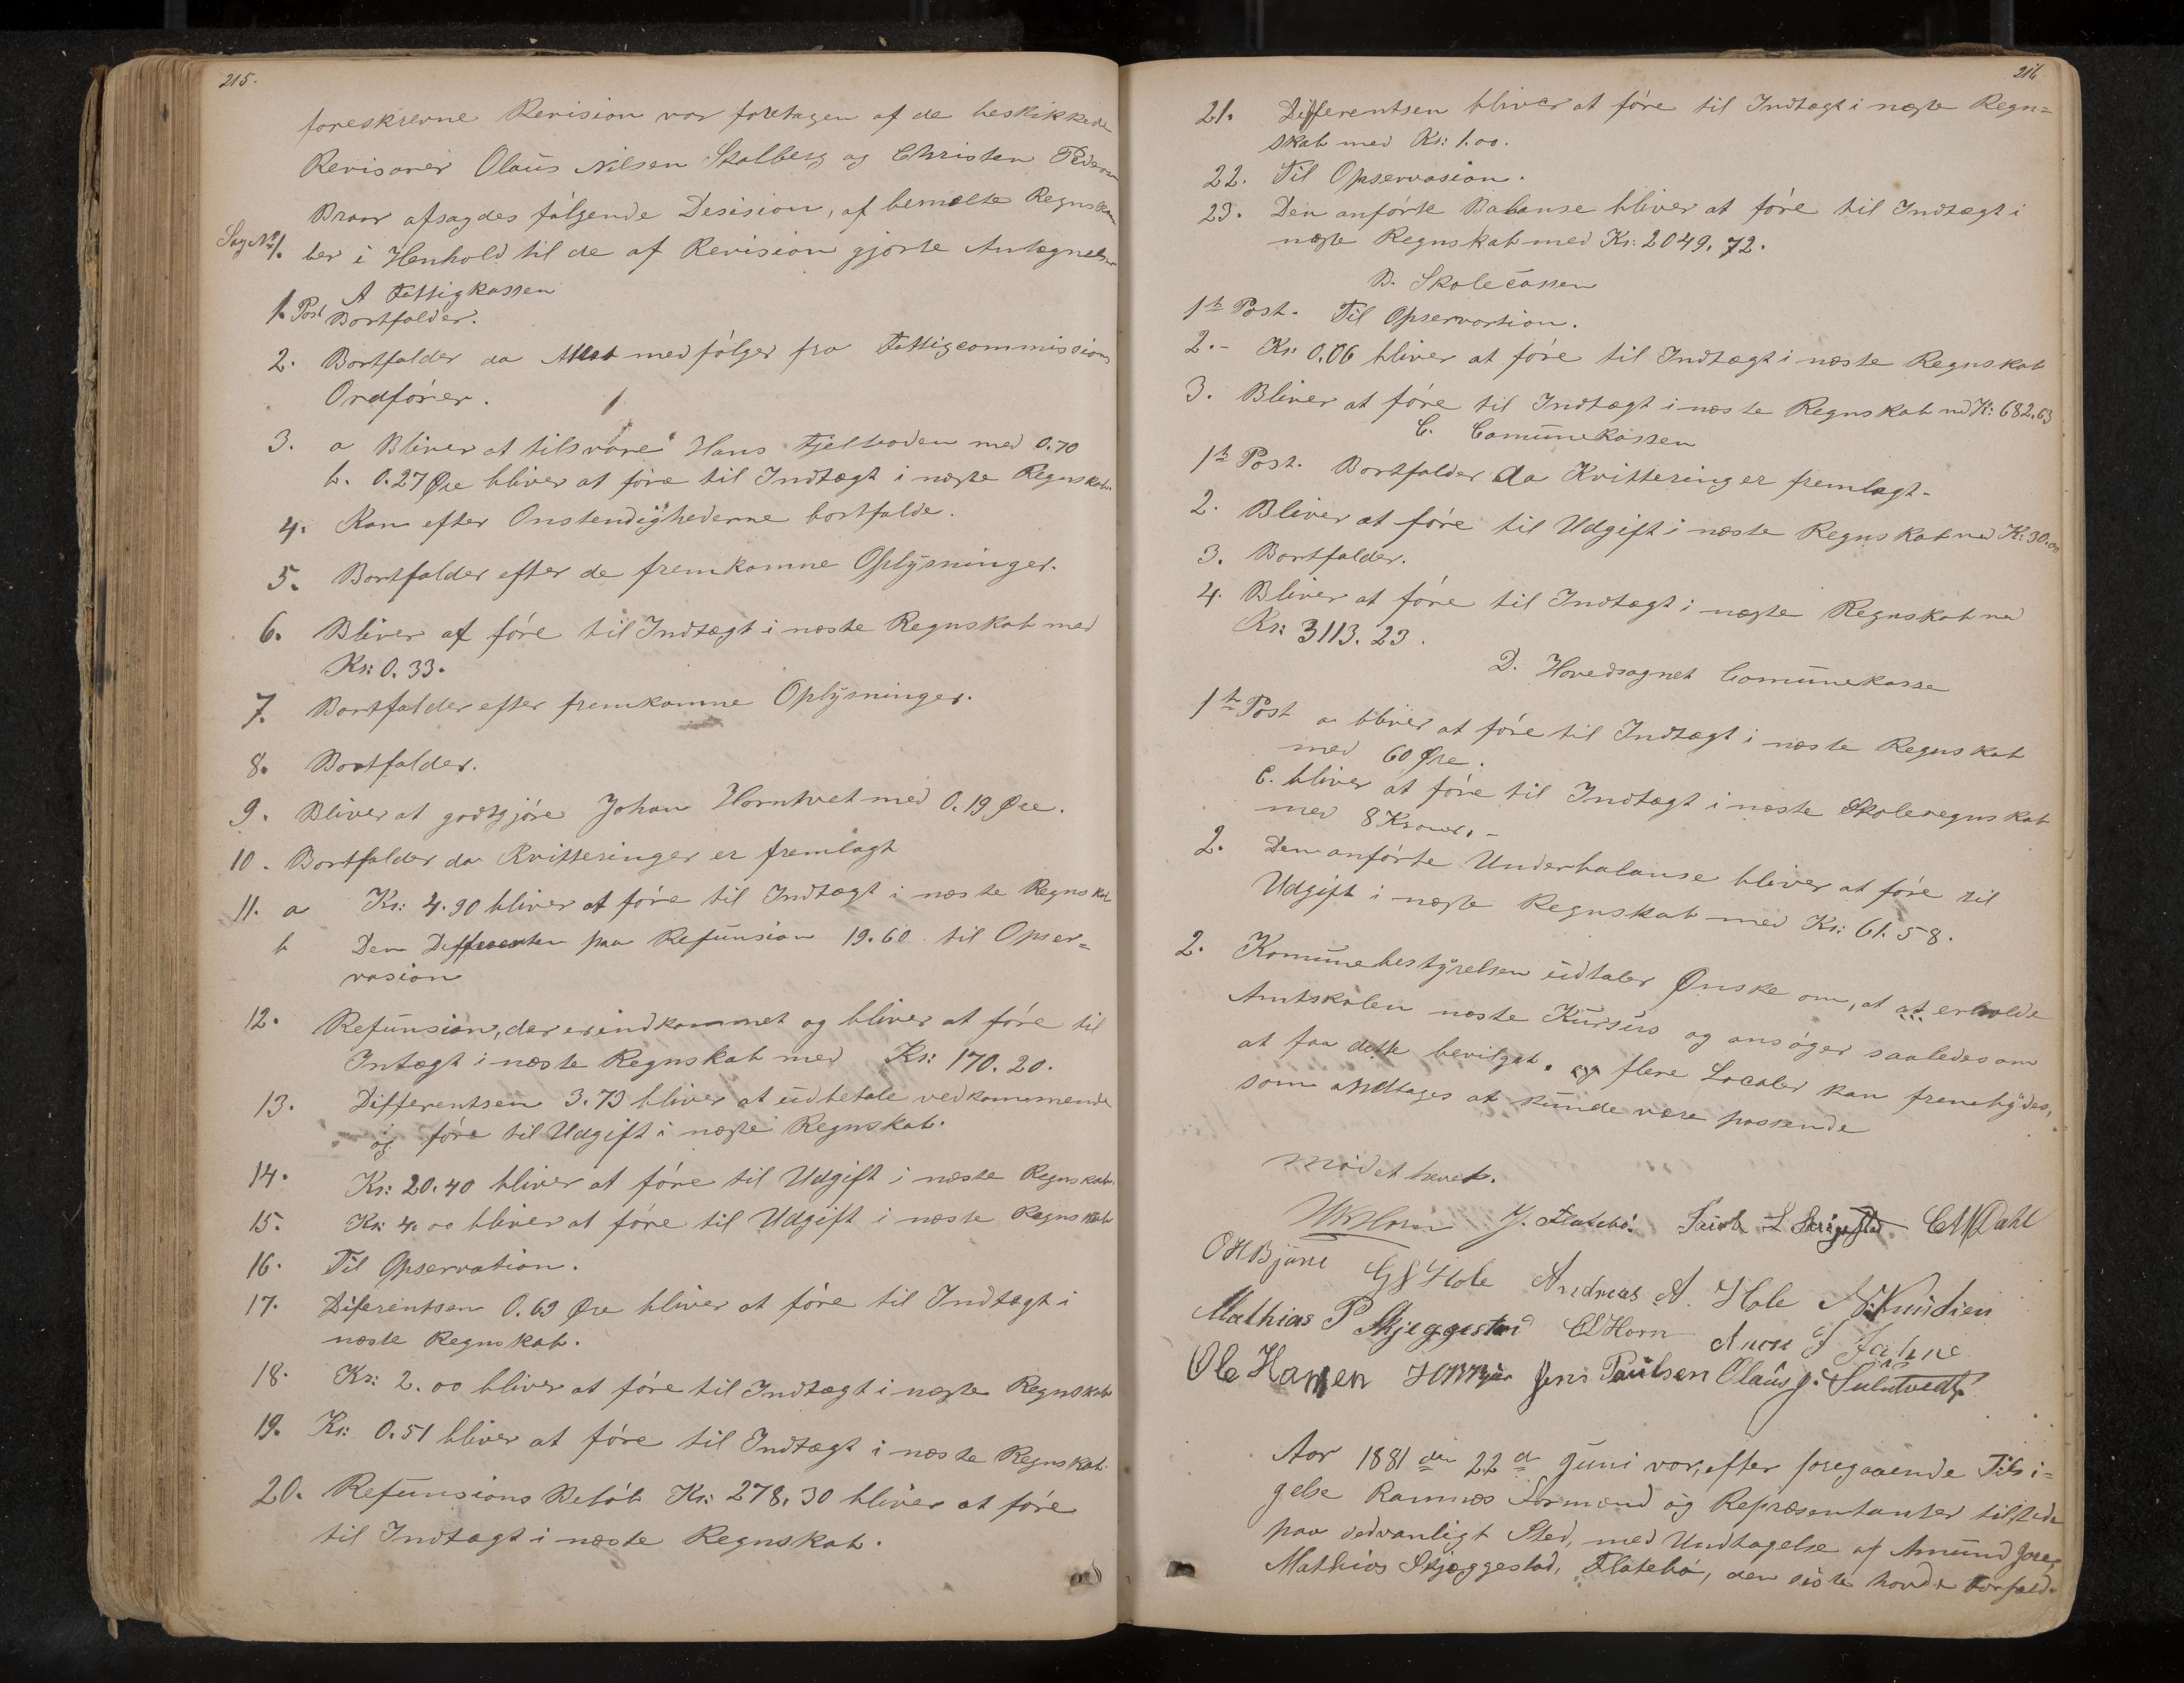 215.
foreskrevne Revision var foretagen af de beskikkede
Revisorer Olaus Nilsen Stalberg og Christen Peders
Braar afsagdes følgende Desision, af bemælte Regnska
Sag No 1. ber i Henhold til de af Revision gjorte Antægnelser
A Fattigkassen
1. Post Bortfalder.
2. Bortfalder da medfølger fra Fattigcommissions
Ordfører.
3. a Bliver at tilsvare Hans Fjelboden med 0.70
b. 0.27 Øre bliver at føre til Indtægt i næste Regnskab.
4. Kan efter Onstendighederne bortfalde.
5. Bortfalder efter de fremkomne Oplysninger.
6. Bliver at føre til Indtægt i næste Regnskab med
Kr: 0.33.
7. Bortfalder efter fremkomne Oplysninger.
8. Bortfalder.
9. Bliver at godtgjøre Johan Horntvet med 0.19 Øre.
10. Bortfalder da Kvitteringer er fremlagt
11. a Kr: 4.90 bliver at føre til Indtægt i næste Regnskab
b Den Differenten paa Refunsion 19.60 til Opser=
vasion
12. Refunsion, der er indkommet og bliver at føre til
Intægt i næste Regnskab med Kr: 170.20.
13. Differentsen 3.73 bliver at udbetale vedkommende
og føre til Udgift i næste Regnskab.
14. Kr: 20.40 bliver at føre til Udgift i næste Regnskab.
15. Kr: 4.00 bliver at føre til Udgift i næste Regnskab
16. Til Opservation.
17. Diferentsen 0.69 Øre bliver at føre til Indtægt i
næste Regnskab.
18. Kr: 2.00 bliver at føre til Indtægt i næste Regnskab
19. Kr: 0.51 bliver at føre til Indtægt i næste Regnskab.
20. Refunsions Beløb Kr: 278,30 bliver at føre
til Indtægt i næste Regnskab.
216
21. Differentsen bliver at føre til Indtægt i næste Regn=
skab med Kr: 1.00.
22. Til Opservasion.
23. Den anførte Balanse bliver at føre til Indtægt i
næste Regnskab med Kr: 2049.72.
B. Skolecassen
1te Post. Til Opservartion.
2.- Kr: 0.06 bliver at føre til Indtægt i næste Regnskab
3. Bliver at føre til Indtægt i næste Regnskab md K: 682,63
C. Comunekassen
1te Post. Bortfalder da Kvitteringer fremlagt-
2. Bliver at føre til Udgift i næste Regnskab med K: 30.00
3. Bortfalder.
4. Bliver at føre til Indtægt i næste Regnskab med
Kr: 3113.23.
D. Hovedsognet Comunekasse
1te Post a bliver at føre til Indtægt i næste Regnskab
med 60 Øre.
C. bliver at føre til Indtægt i næste Skoleregnskab
med 8 Kroner.-
2. Den anførte Underbalanse bliver at føre til
Udgift i næste Regnskab med Kr: 61.58.
2. Komunebestyrelsen udtaler Ønske om, at at erholde
Amtskolen næste Kursus og ansøger saaledes om
at faa dette bevilget, og flere Localer kan frembydes,
som andtages at kunde være passende
Mødet hævet.
Horn J. Flatebø. Jacob L Skrigestad C M Dahl
O H Bjune G J Hole Andreas A. Hole N. Knudsen
Mathias P Skjeggestad C L Horn Anon J Jahne
Ole Hansen Jens Paulsen Olaus J. Sulutvedt
Aar 1881 den 22de Juni var, efter foregaaende Tilsi=
gelse Ramnæs Formænd og Repræsentanter tilstede
paa sedvanligt Sted, med Undtagelse af Amund Jore,
Mathias Skjæggestad, Flatebø, den siste havde Forfald.